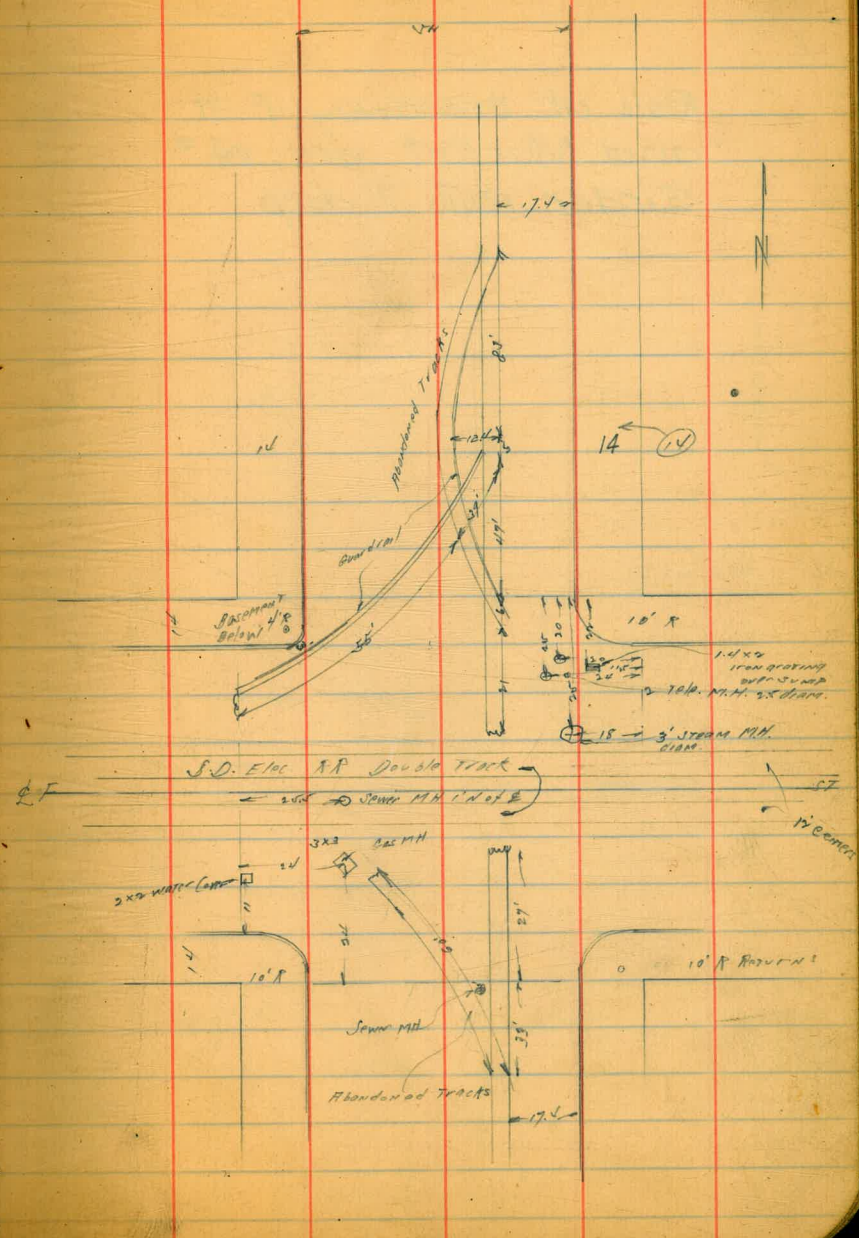 52
17.4
N
83'
Abandoned Tracks
12.4
14
14
14
Guardrail
37'
49'
Basement
Below
4'R
10' R
25
20
55'
21
1.4 x 2
iron grating
over sump
Tele. M.H. 2.5 diam.
18
3' Steam M.H.
diam.
S.D. Elec RR Double Track
℄ F
ST
25.5
Sewer MH 1' N of ℄
12' Centers
3x3
Gas MH
24
2x2 Water Cover
11
24
29'
60'
14
10' R
10' R Returns
Sewer MH
33'
Abandoned Tracks
17.4